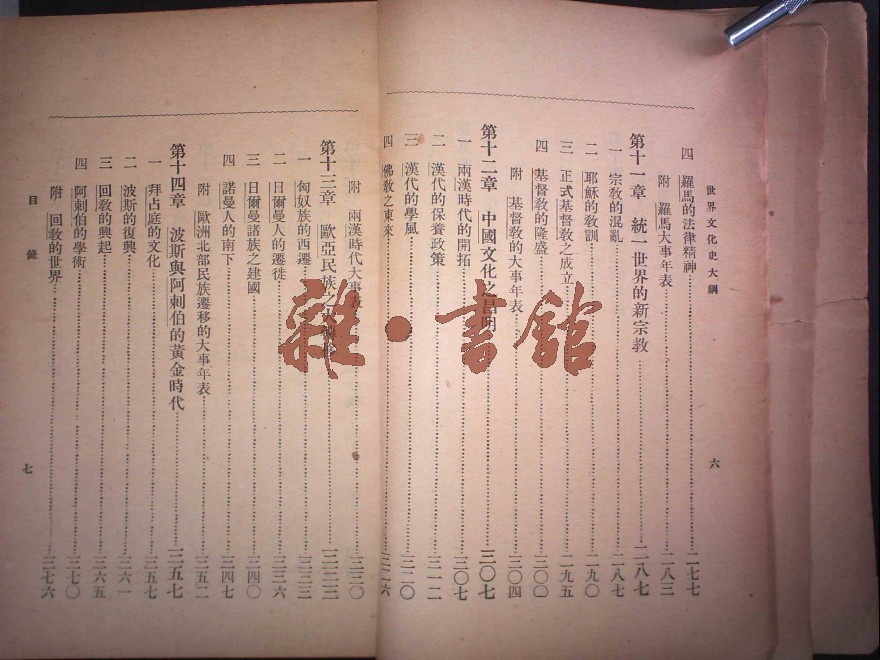 世界文化史大綱
四 羅馬的法律精神 二七七
附 羅馬大事年表 二八三
第十一章 統一世界的新宗教 二八七
一 宗教的混亂 二八七
二 耶穌的教訓 二九〇
三 正式基督教之成立 二九五
四 基督教的隆盛 三〇〇
附 基督教的大事年表 三〇四
第十二章 中國文化之昌明 三〇七
一 兩漢時代的開拓 三〇七
二 漢代的保養政策 三一二
三 漢代的學風 三二〇
四 佛教之東來 三二六
六
附 兩漢時代大事表 三三〇
第十三章 歐亞民族之大 三三三
一 匈奴族的西遷 三三三
二 日爾曼人的遷徙 三三六
三 日爾曼諸族之建國 三四〇
四 諾曼人的南下 三四七
附 歐洲北部民族遷移的大事年表 三五二
第十四章 波斯與阿剌伯的黃金時代 三五七
一 拜占庭的文化 三五七
二 波斯的復興 三六一
三 回教的興起 三六五
四 阿剌伯的學術 三七〇
附 回教的世界 三七六
目錄
七
雜·書館